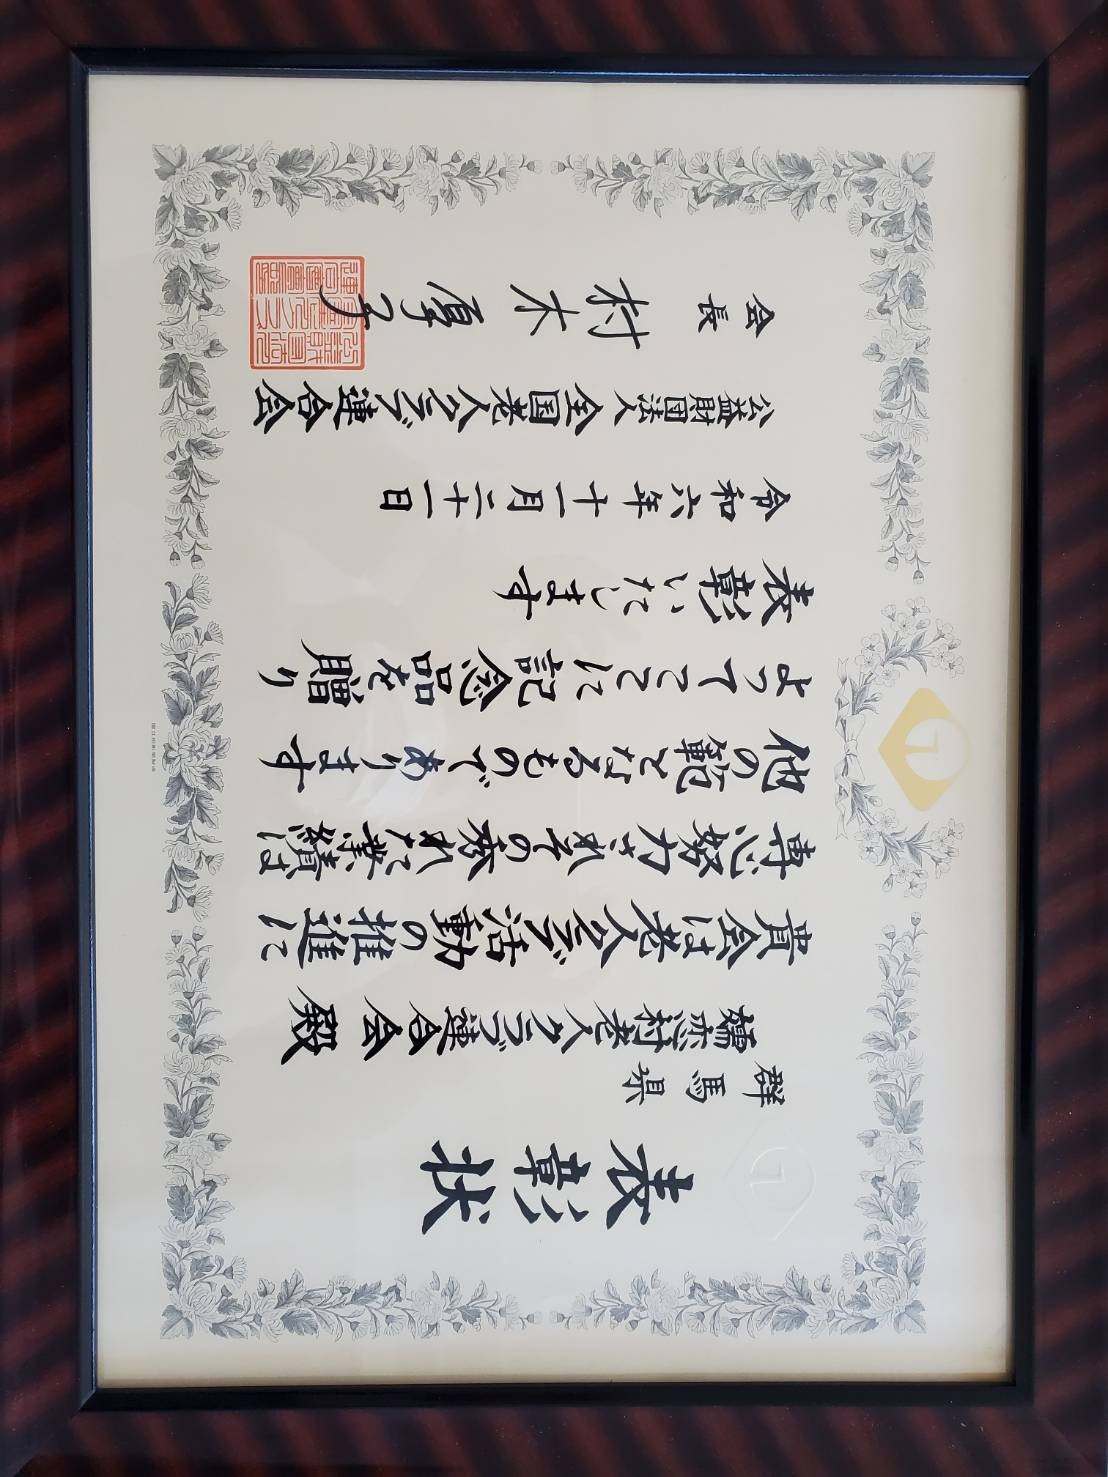 表彰状
群馬県
嬬恋村老人クラブ連合会殿
貴会は老人クラブ活動の推進に
専心努力されその秀れた業績は
他の範となるものであります
よってここに記念品を贈り
表彰いたします
令和六年十一月二十一日
公益財団法人全国老人クラブ連合会
会長 村木厚子